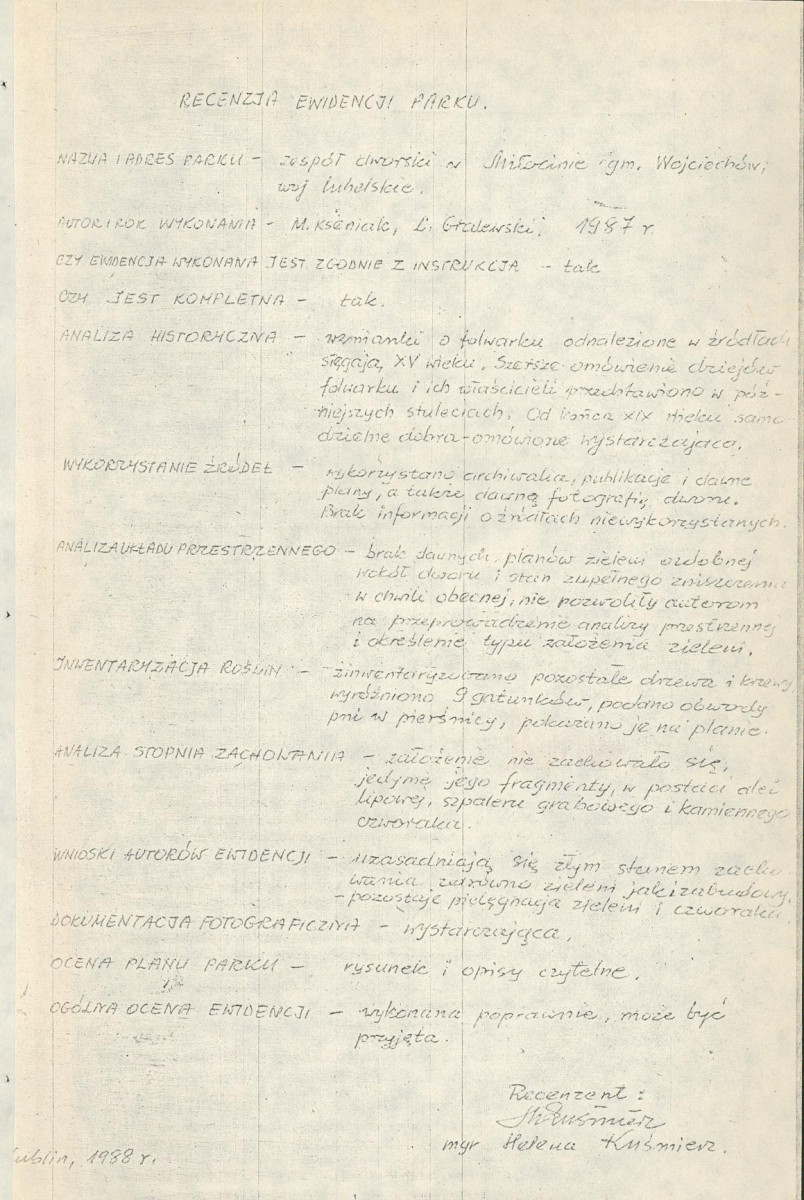 RECENZJA EWIDENCJI PARKU.
NAZWA I ADRES PARKU – zespół dworski w Miłocinie gm. Wojciechów,
woj lubelskie.
AUTOR I ROK WYKONANIA – M. Kseniak, L. Gralewski, 1987 r.
CZY EWIDENCJA WYKONANA JEST ZGODNIE Z INSTRUKCJĄ – tak
CZY JEST KOMPLETNA – tak.
ANALIZA HISTORYCZNA – wzmianki o folwarku odnalezione w źródłach
sięgają XV wieku. Szersze omówienie dziejów
folwarku i ich właścicieli przedstawiono w póź-
niejszych stuleciach. Od końca XIX wieku samo
dzielne dobra – omówione wystarczająco.
WYKORZYSTANIE ŹRÓDEŁ – wykorzystano archiwalia, publikacje i dawne
plany, a także dawną fotografię dworu.
Brak informacji o źródłach niewykorzystanych.
ANALIZA UKŁADU PRZESTRZENNEGO – brak dawnych planów zieleni ozdobnej
wokół dworu i stan zupełnego zniszczenia
w chwili obecnej, nie pozwoliły autorom
na przeprowadzenie analizy przestrzennej
i określenie typu założenia zieleni.
INWENTARYZACJA ROŚLIN – zinwentaryzowano pozostałe drzewa i krzewy,
wyróżniono 9 gatunków, podano obwody
pni w pierśnicy, pokazano je na planie.
ANALIZA STOPNIA ZACHOWANIA – założenie nie zachowało się,
jedynie jego fragmenty, w postaci alei
lipowej, szpaleru grabowego i kamiennego
czworaka.
WNIOSKI AUTORÓW EWIDENCJI – uzasadniają się złym stanem zacho
wania zarówno zieleni jak i zabudowy,
– pozostaje pielęgnacja zieleni i czworaku.
DOKUMENTACJA FOTOGRAFICZNA – wystarczająca.
OCENA PLANU PARKU – rysunek i opisy czytelne.
OGÓLNA OCENA EWIDENCJI – wykonana poprawnie, może być
przyjęta.
Recenzent:
mgr Helena Kuśmierz.
Lublin, 1988 r.